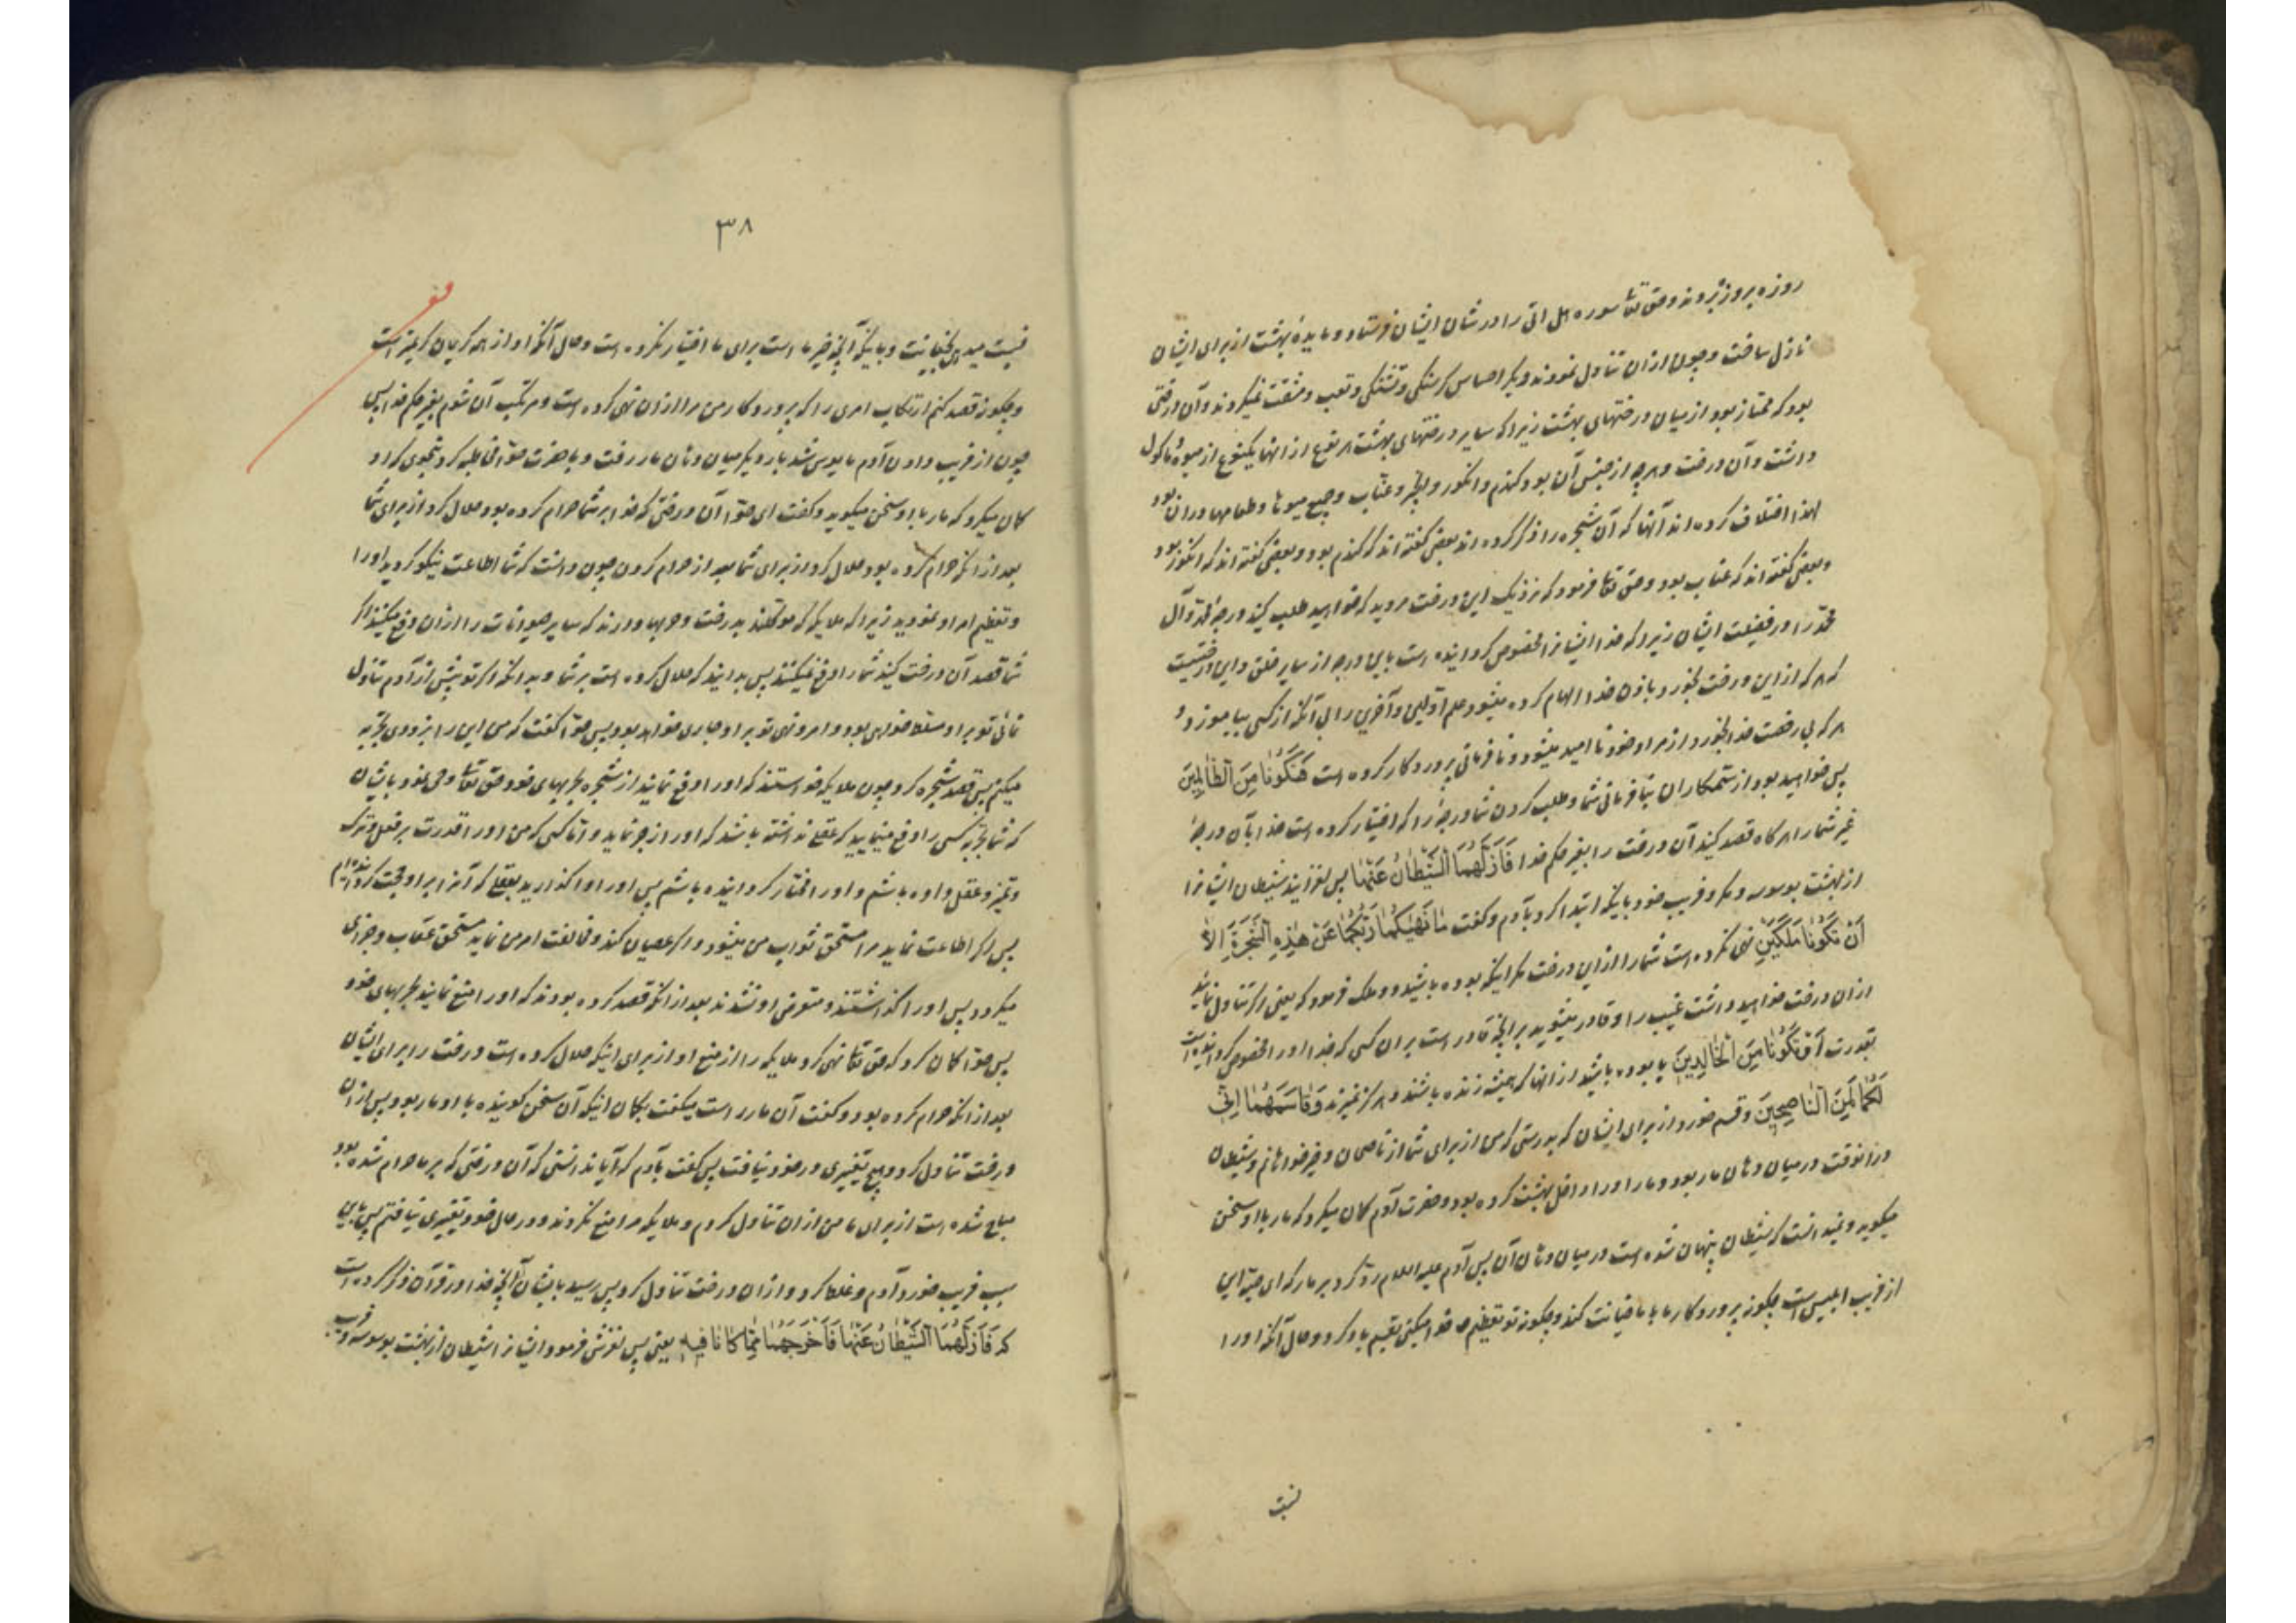 روزه بروز بردند و حق تعالی سوره هل اتی را در شان ایشان فرستاد و مایدهٔ بهشت از برای ایشان
نازل ساخت و چون از ان تناول نمودند دیگر احساس کرسنکی و تشنکی و تعب و مشقت نمیکردند و آن درختی
بود که ممتاز بود از میان درختهای بهشت زیرا که سایر درختهای بهشت هر نوع از انها یکنوع از میوه و ماکول
داشت و آن درخت و هر چه از جنس آن بود کندم و انکور و انجیر و عناب و جمیع میوها و طعامها در ان بود
لهذا اختلاف کرده اند آنها که آن شجره را ذکر کرده اند بعضی کفته اند که کندم بود و بعضی کفته اند که انکور بود
و بعضی کفته اند که عناب بود و حق تعا فرمود که نزدیک این درخت مروید که خواهید طلب کنید درجهٔ محمد و آل
محمد را در فضیلت ایشان زیرا که خدا ایشانرا مخصوص کردانیده است باین درجه از سایر خلق و این درختیست
که هر که از این درخت بخورد باذن خدا الهام کرده میشود علم اولین و آخرین را بی آنکه از کسی بیاموزد و
هر که بی رخصت خدا بخورد از مراد خود نا امید میشود و نا فرمانی پروردکار کرده است فَتَكُونَا مِنَ الظَّالِمِينَ
پس خواهید بود از ستمکاران بنا فرمانی شما و طلب کردن شما درجهٔ را که اختیار کرده است خدا بآن درجهٔ
غیر شما را هر کاه قصد کنید آن درخت را بغیر حکم خدا فَأَزَلَّهُمَا الشَّيْطَانُ عَنْهَا پس لغزانید شیطان ایشانرا
از بهشت بوسوسه و مکر و فریب خود باینکه ابتدا کرد بآدم و کفت مَا نَهٰيكُمَا رَبُّكُمَا عَنْ هٰذِهِ الشَّجَرَةِ اِلَّا
أَنْ تَكُونَا مَلَكَيْنِ نهی نکرده است شما را از این درخت مکر اینکه بوده باشید دو ملک فرمود که یعنی اکر تناول نمائید
از ان درخت خواهید دانست غیب را و قادر میشوید بر آنچه قادر است بر ان کسی که خدا او را مخصوص کردانیده است
بقدرت أَوْ تَكُونَا مِنَ الْخَالِدِينَ یا بوده باشید از انها که همیشه زنده باشند و هر کز نمیرند وَقَاسَمَهُمَا اِنِّي
لَكُمَا لَمِنَ النَّاصِحِينَ و قسم خورد از برای ایشان که بدرستی که من از برای شما از ناصحان و خیر خواهانم و شیطان
در انوقت در میان دهان مار بود و مار او را داخل بهشت کرده بود و حضرت آدم کمان میکرد که مار با او سخن
میکوید و نمیدانست که شیطان پنهان شده است در میان دهان آن پس آدم علیه السلام رد کرد بر مار که ای حیه این
از فریب ابلیس است چکونه پروردکار ما با ما خیانت کند و چکونه تو تعظیم خدا میکنی بقسم باو کردن و حال آنکه او را
نسبت
٣٨
نسبت میدهی بخیانت و باینکه آنچه خیر ماست برای ما اختیار نکرده است و حال آنکه او از همه کریمان کریمتر است
و چکونه قصد کنم ارتکاب امری را که پروردکار من مرا از ان نهی کرده است و مرتکب آن شوم بغیر حکم خدا پس
چون از فریب دادن آدم مایوس شد بار دیکر میان دهان مار رفت و با حضرت حوا مخاطبه کرد بنحوی که او
کمان میکرد که مار با او سخن میکوید و کفت ای حوا آن درختی که خدا بر شما حرام کرده بود حلال کرد از برای شما
بعد از انکه حرام کرده بود حلال کرد از برای شما بعد از حرام کردن چون دانست که شما اطاعت نیکو کردید او را
و تعظیم امر او نمودید زیرا که ملایکه که موکلند بدرخت و حربها دارند که سایر حیوانات را از ان دفع میکنند اکر
شما قصد آن درخت کنید شما را دفع نمیکنند پس بدانید که حلال کرده است بر شما و بدانکه اکر تو پیش از آدم تناول
نمائی تو بر او مسلط خواهی بود و امر و نهی تو بر او جاری خواهد بود پس حوا کفت که من این را بزودی تجربه
میکنم پس قصد شجره کرد چون ملایکه خواستند که او را دفع نمایند از شجره بحربهای خود حق تعا وحی نمود بایشان
که شما بحربه کسی را دفع مینمایید که عقلی نداشته باشد که او را زجر نماید و اما کسی که من او را قدرت بر فعل و ترک
و تمیز و عقل داده باشم و او را مختار کردانیده باشم پس او را واکذارید بعقلی که آنرا بر او حجت کردانیده ام
پس اکر اطاعت نماید مرا مستحق ثواب من میشود و اکر عصیان کند و مخالفت امر من نماید مستحق عقاب و جزای
میکردد پس او را کذاشتند و متعرض او نشدند بعد از انکه قصد کرده بودند که او را منع نمایند بحربهای خود
پس حوا کمان کرد که حق تعا نهی کرد ملایکه را از منع او از برای اینکه حلال کرده است درخت را برای ایشان
بعد از انکه حرام کرده بود و کفت آن مار راست میکفت بکمان اینکه آن سخن کوینده با او مار بود پس از ان
درخت تناول کرد و هیچ تغییری در خود نیافت پس کفت بآدم که آیا ندانستی که آن درختی که بر ما حرام شده بود
مباح شده است از برای ما من از ان تناول کردم و ملایکه مرا منع نکردند و در حال خود تغییری نیافتم پس باین
سبب فریب خورد آدم و غلط کرد و از ان درخت تناول کرد پس رسید بایشان آنچه خدا در قرآن ذکر کرده است
که فَأَزَلَّهُمَا الشَّيْطَانُ عَنْهَا فَأَخْرَجَهُمَا مِمَّا كَانَا فِيهِ یعنی پس لغزش فرمود ایشانرا شیطان از بهشت بوسوسه و فریب